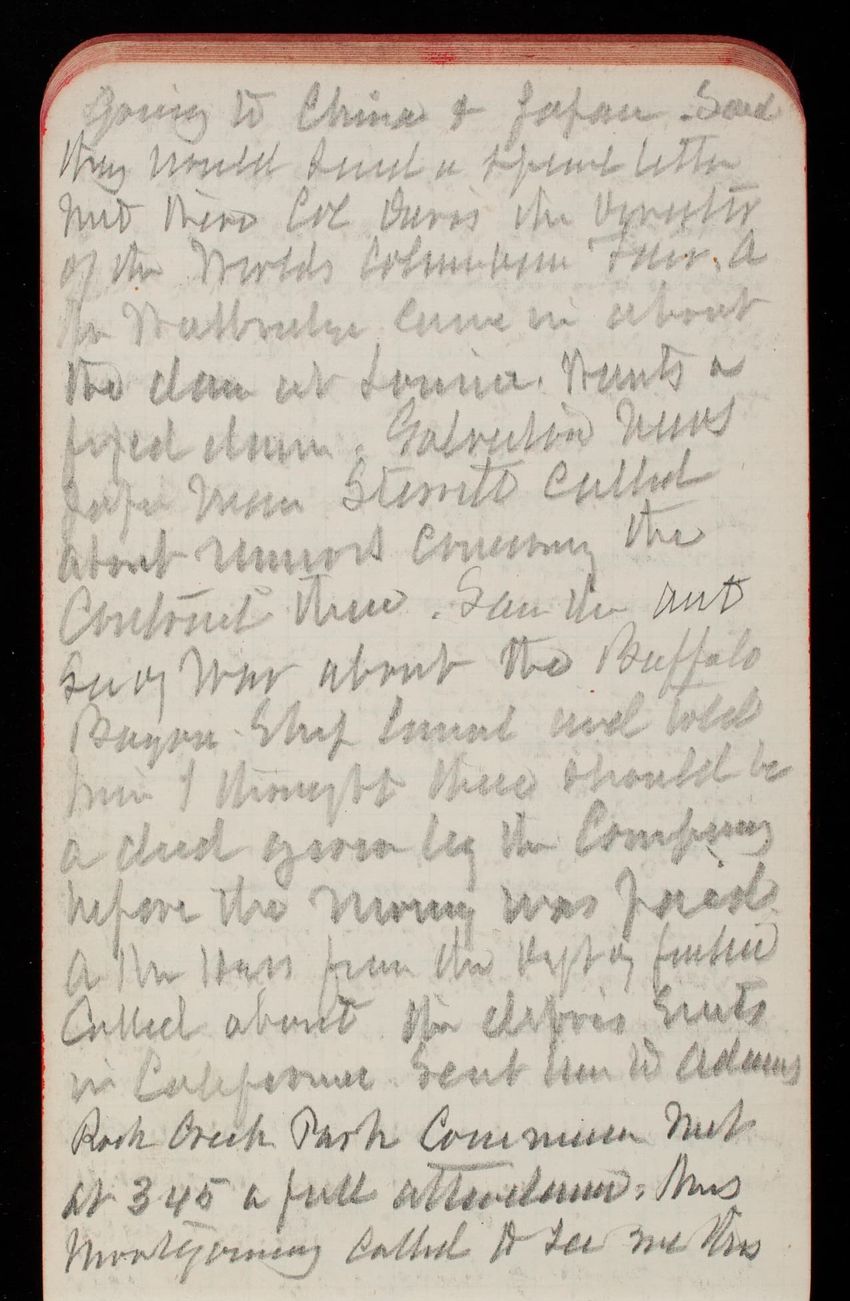 Going to China & Japan. Said
they would send a special letter
Met there Col Davis the Director
of the Worlds Columbian Fair. A
Mr Walbridge came in about
the dam at Louisa. Wants a
fixed dam. Galveston News
paper man Sterrett called
about rumors concerning the
Contract there. Saw the act
Secy War about the Buffalo
Bayou Ship Canal and told
him I thought there should be
a deed given by the Company
before the money was paid
A Mr from the Dept of Justice
Called about the debris Suits
in California. Sent him to Adams
Rock Creek Park Commission Met
at 345 a full attendance. Mrs
Montgomery called to see me this